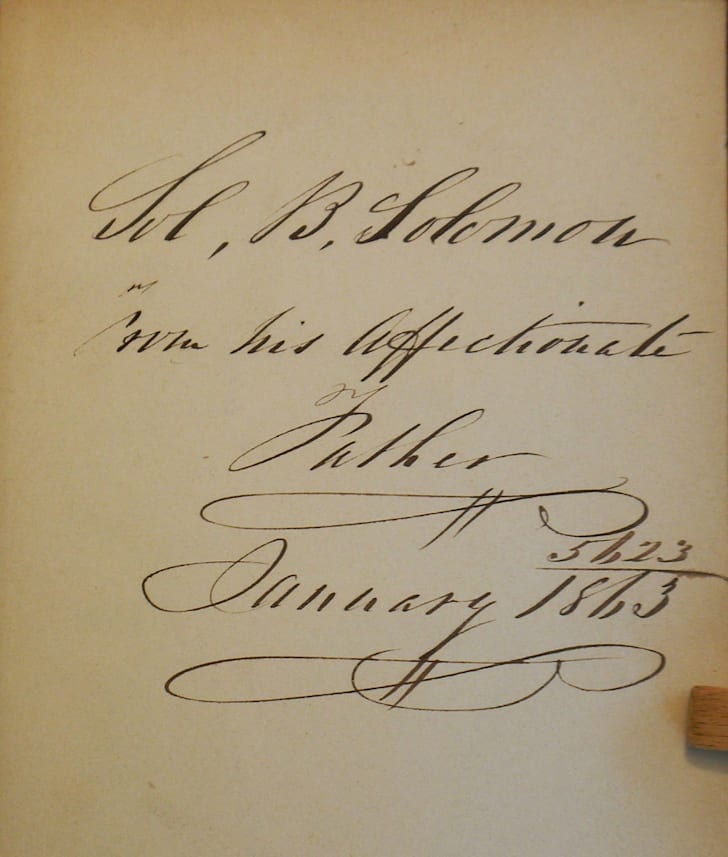 Sol, B, Solomon
From his Affectionate
Father
5623
January 1863